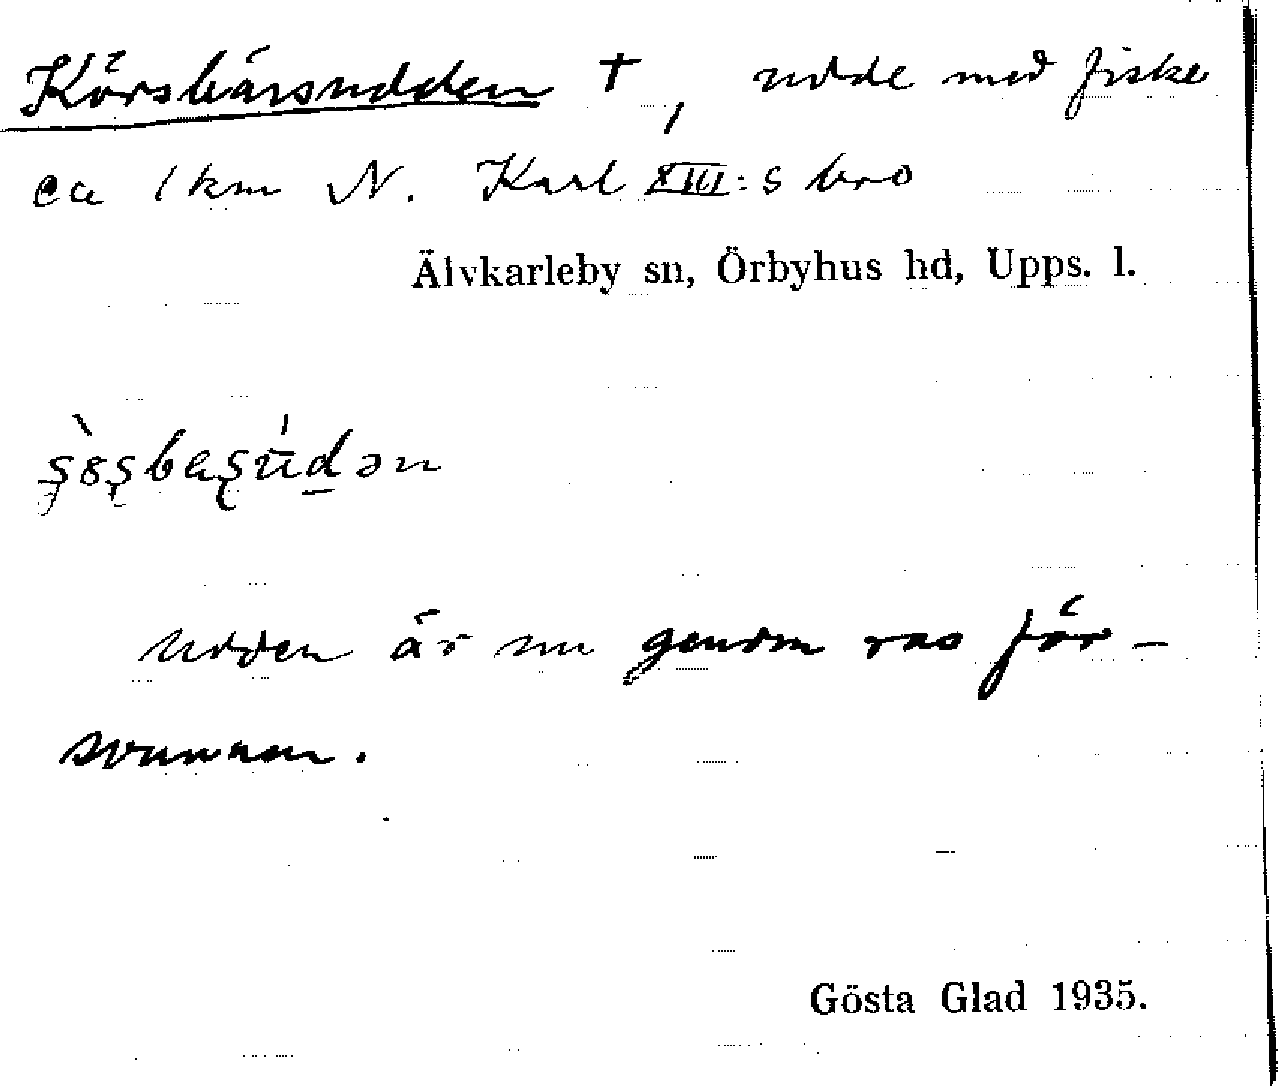 Körsbärsudden †, udde med fiske
ca 1 km N. Karl XIII:s bro
Älvkarleby sn, Örbyhus hd, Upps. l.
Udden är nu genom ras för-
svunnen.
Gösta Glad 1935.